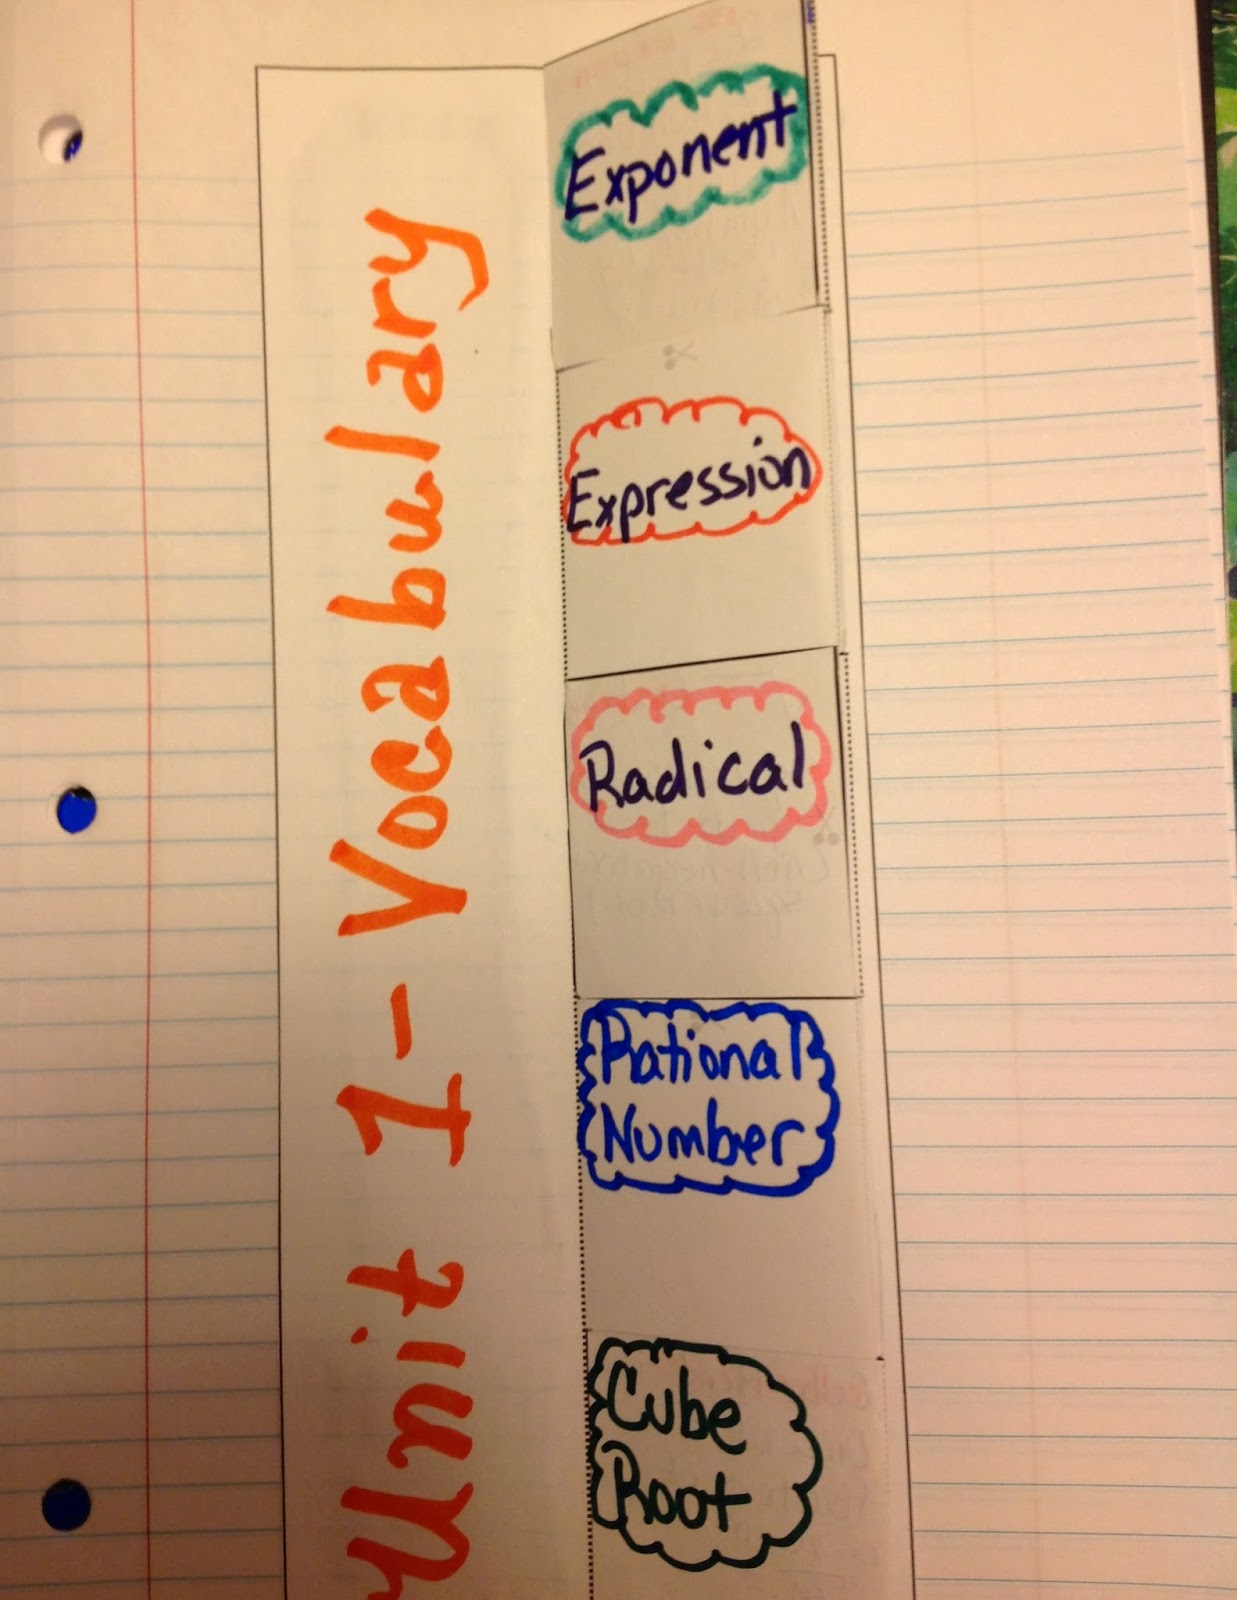 Unit 1 - Vocabulary
Exponent
Expression
Radical
Rational
Number
Cube
Root